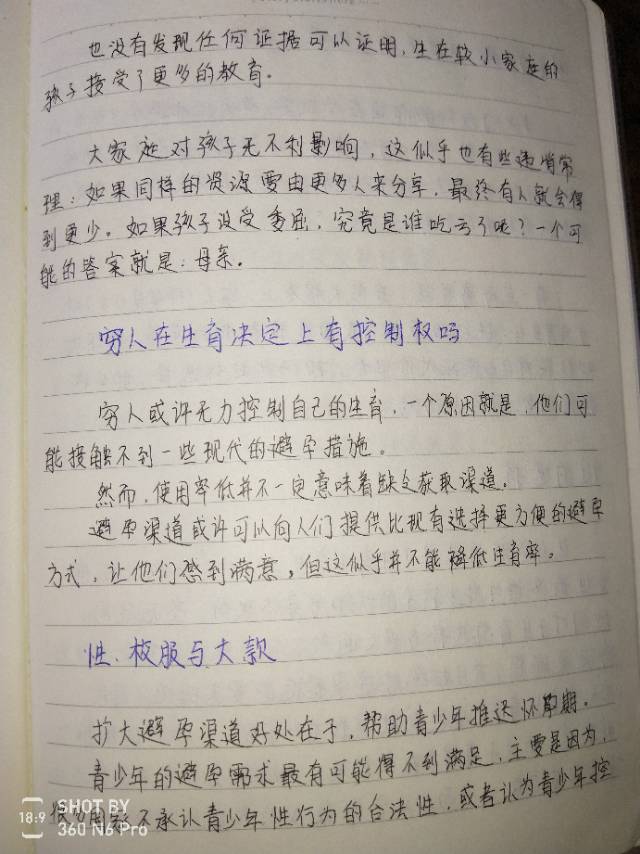 也没有发现任何证据可以证明,生在较小家庭的
孩子接受了更多的教育。
大家庭对孩子无不利影响,这似乎也有些违背常
理:如果同样的资源要由更多人来分享,最终有人就会得
到更少。如果孩子没受委屈,究竟是谁吃亏了呢?一个可
能的答案就是:母亲。
穷人在生育决定上有控制权吗
穷人或许无力控制自己的生育,一个原因就是,他们可
能接触不到一些现代的避孕措施。
然而,使用率低并不一定意味着缺乏获取渠道。
避孕渠道或许可以向人们提供比现有选择更方便的避孕
方式,让他们感到满意,但这似乎并不能降低生育率。
性、校服与大款
扩大避孕渠道好处在于,帮助青少年推迟怀孕期。
青少年的避孕需求最有可能得不到满足,主要是因为,
很多国家不承认青少年性行为的合法性,或者认为青少年控
18:9 SHOT BY
360 N6 Pro